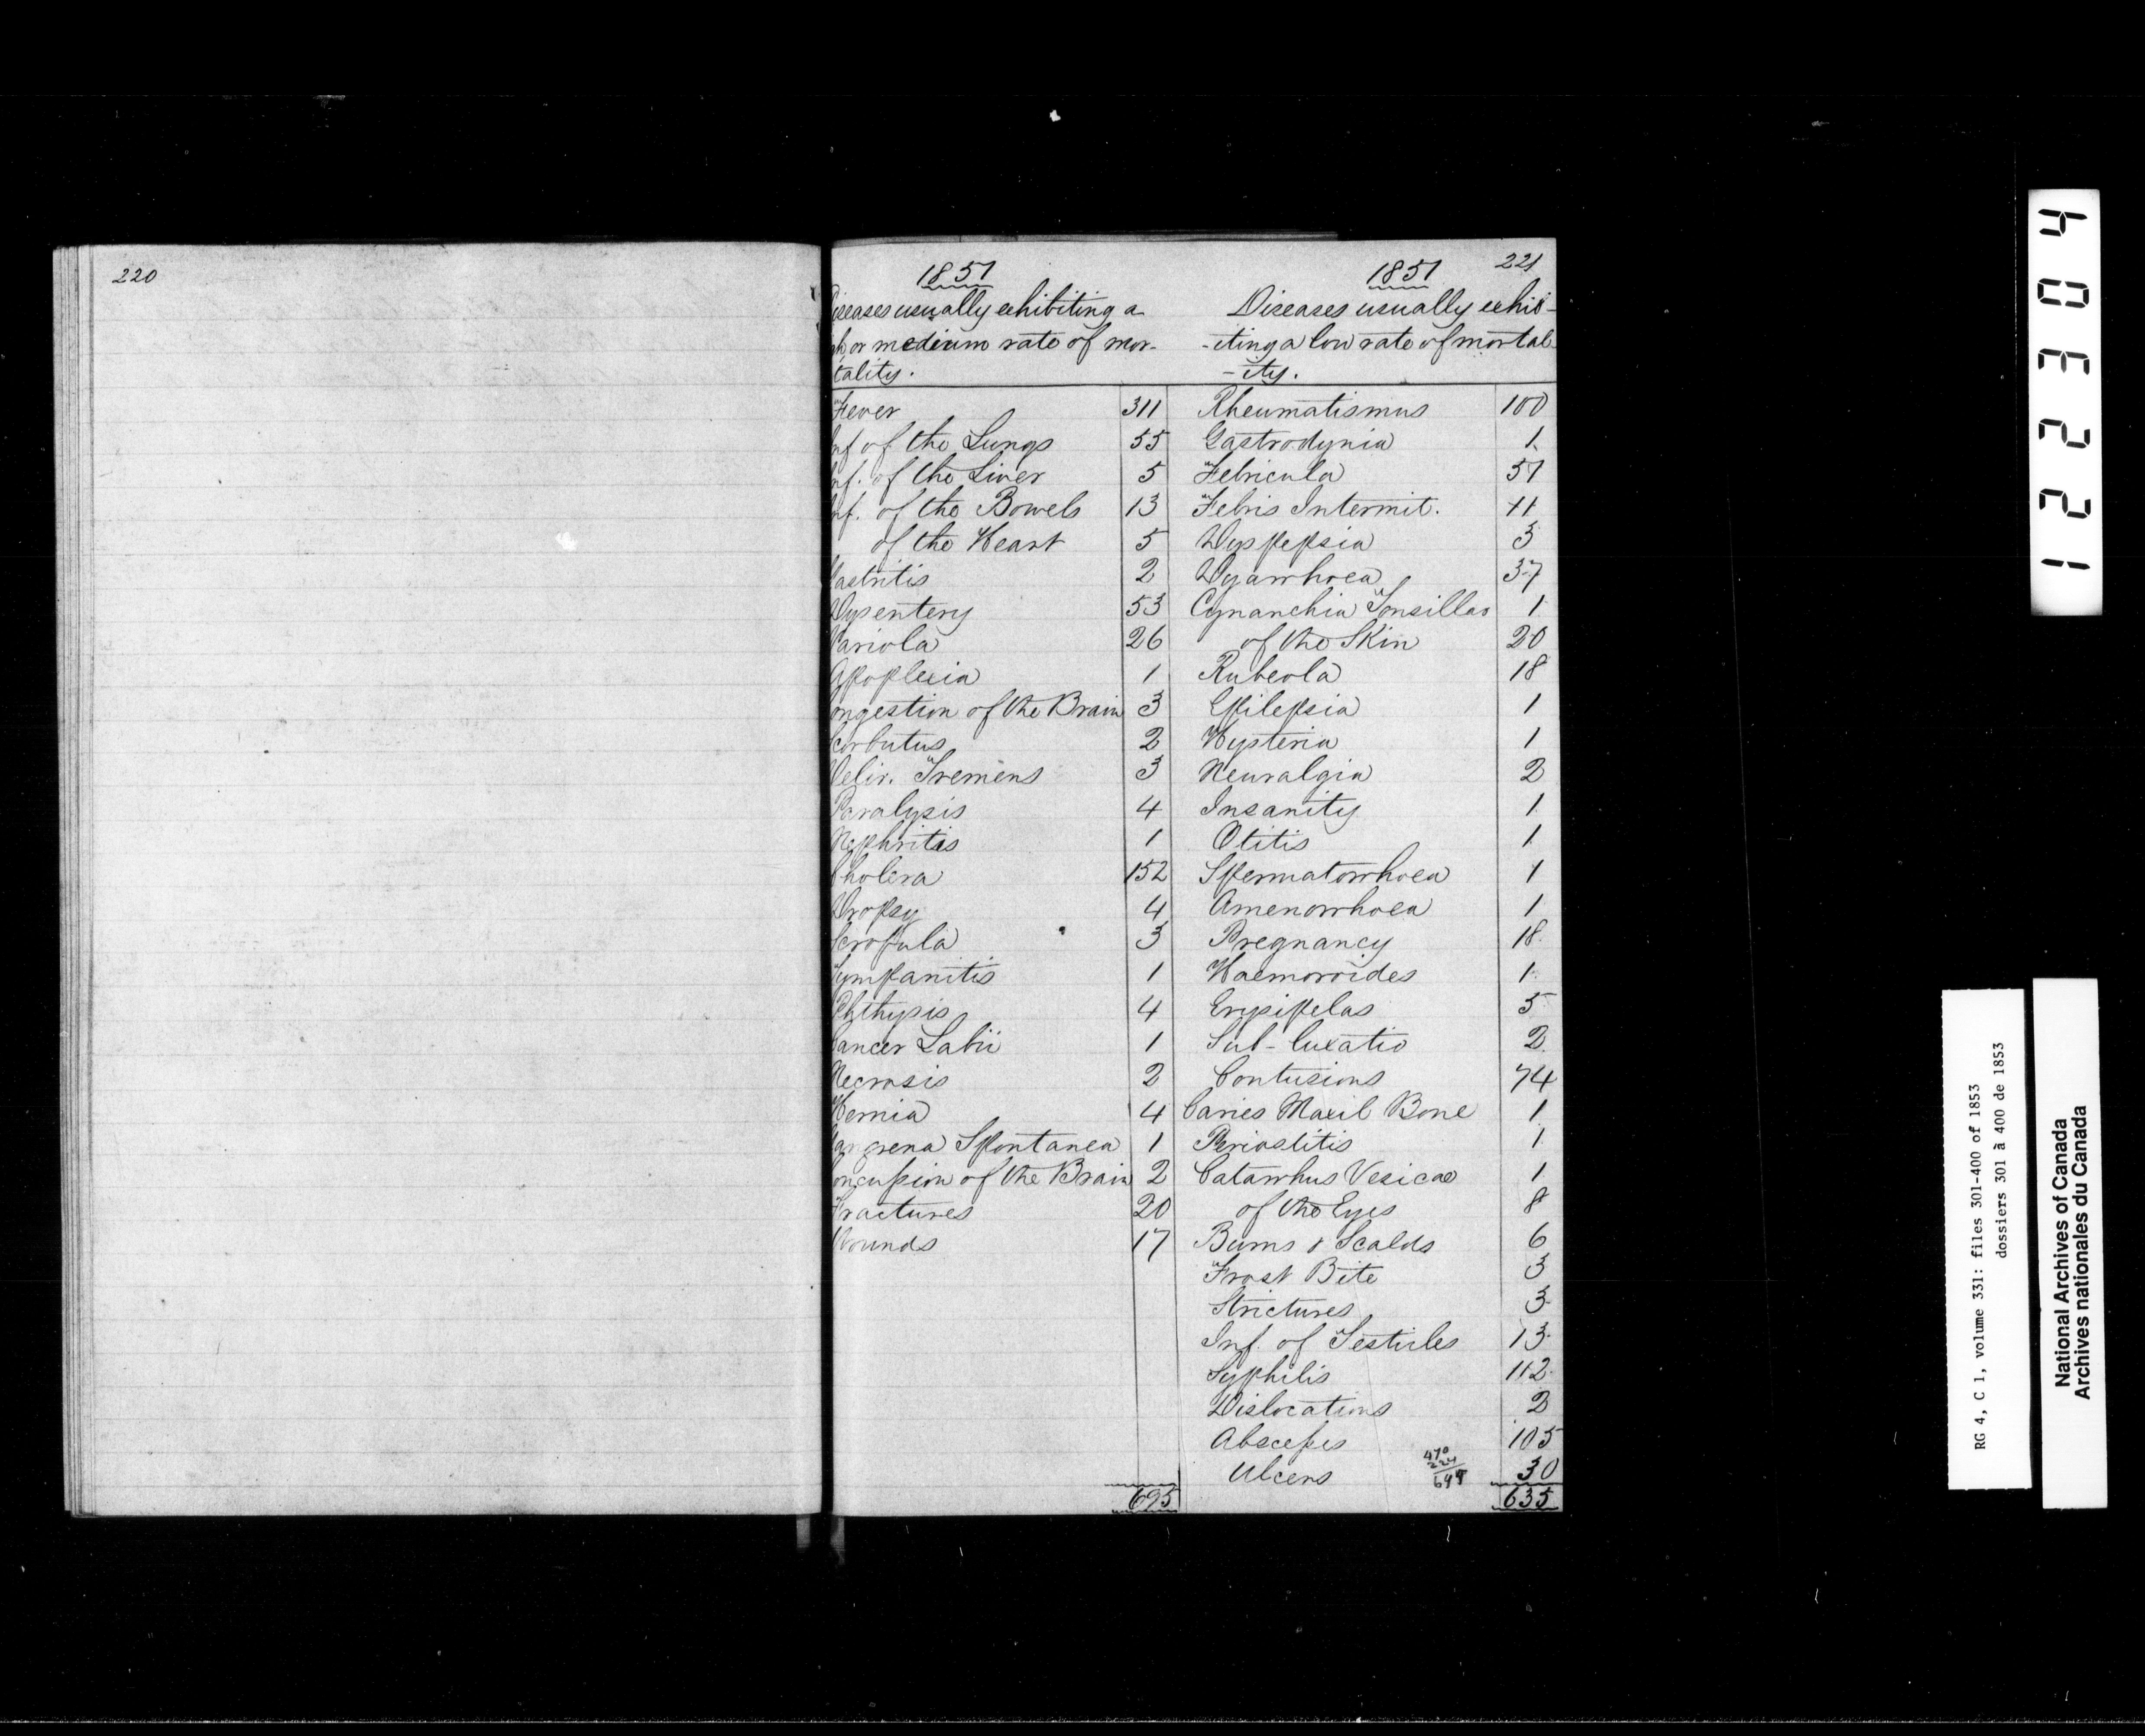 220
221
1851
Diseases usually exhibiting a
h or medium rate of mor-
tality.
Fever 311
Inf of the Lungs 55
Inf. of the Liver 5
Inf. of the Bowels 13
of the Heart 5
Gastritis 2
Dysentery 53
Variola 26
Apoplexia 1
Congestion of the Brain 3
Scorbutus 2
Delir. Tremens 3
Paralysis 4
Nephritis 1
Cholera 152
Dropsy 4
Scrofula 3
Tympanitis 1
Phthysis 4
Cancer Labii 1
Necrosis 2
Hernia 4
Gangrena Spontanea 1
Concussion of the Brain 2
Fractures 20
Wounds 17
695
1851
Diseases usually exhib-
-iting a low rate of mortal-
-ity.
Rheumatismus 100
Gastrodynia 1
Febricula 57
Febris Intermit. 11
Dyspepsia 3
Dyarrhoea 37
Cynanchia Tonsillar 1
of the Skin 20
Rubeola 18
Epilepsia 1
Hysteria 1
Neuralgia 2
Insanity 1
Otitis 1
Spermatorrhoea 1
Amenorrhoea 1
Pregnancy 18
Haemoroides 1
Erysipelas 5
Sub-luxatio 2
Contusions 74
Caries Maxil Bone 1
Periostitis 1
Catarrhus Vesicae 1
of the Eyes 8
Burns & Scalds 6
Frost Bite 3
Strictures 3
Inf. of Testicles 13
Syphilis 112
Dislocations 2
Abscesses 105
Ulcers 30
470
224
635
12304
RG 4, C 1, volume 331: files 301-400 of 1853
dossiers 301 à 400 de 1853
National Archives of Canada
Archives nationales du Canada